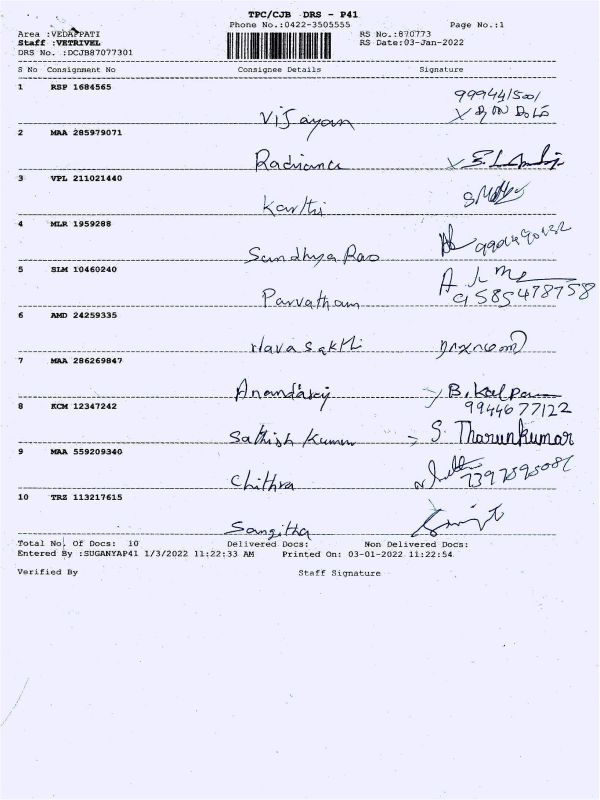 TPC/CJB DRS - P41
Phone No.:0422-3505555 Page No.:1
Area :VEDAPPATI RS No.:870773
Staff :VETRIVEL RS Date:03-Jan-2022
DRS No. :DCJB87077301
S No Consignment No Consignee Details Signature
1 RSP 1684565
Vijayan
2 MAA 285979071
Radiance
3 VPL 211021440
Karthi
4 MLR 1959288
Sandhya Rao
5 SLM 10460240
Parvatham 9585478758
6 AMD 24259335
7 MAA 286269847
Anandaraj B. Kalpana
8 KCM 12347242 9944677122
Sathish Kumar S. Tharunkumar
9 MAA 559209340
Chithra
10 TRZ 113217615
Sangitha
Total No. Of Docs: 10 Delivered Docs: Non Delivered Docs:
Entered By :SUGANYAP41 1/3/2022 11:22:33 AM Printed On: 03-01-2022 11:22:54
Verified By Staff Signature